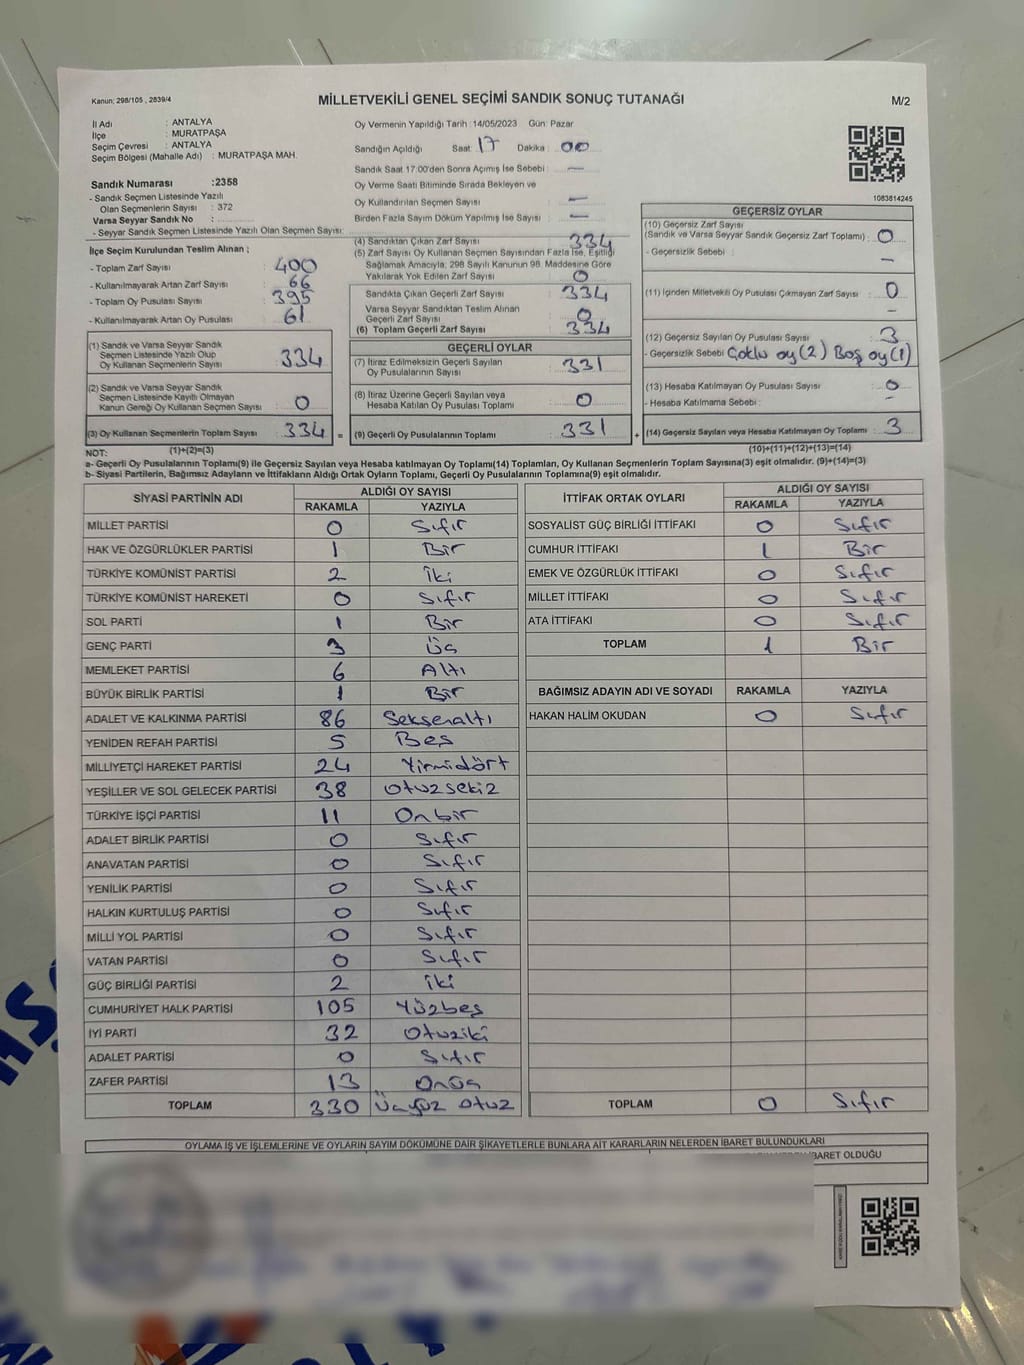 Kanun: 298/105 , 2839/4
MİLLETVEKİLİ GENEL SEÇİMİ SANDIK SONUÇ TUTANAĞI
M/2
İl Adı : ANTALYA
İlçe : MURATPAŞA
Seçim Çevresi : ANTALYA
Seçim Bölgesi (Mahalle Adı) : MURATPAŞA MAH.
Oy Vermenin Yapıldığı Tarih :14/05/2023 Gün: Pazar
Sandığın Açıldığı Saat: 17 Dakika : 00
Sandık Saat 17:00'den Sonra Açımış İse Sebebi : —
Oy Verme Saati Bitiminde Sırada Bekleyen ve
Oy Kullandırılan Seçmen Sayısı : —
Birden Fazla Sayım Döküm Yapılmış İse Sayısı : —
1083814245
Sandık Numarası :2358
- Sandık Seçmen Listesinde Yazılı
Olan Seçmenlerin Sayısı : 372
Varsa Seyyar Sandık No :
- Seyyar Sandık Seçmen Listesinde Yazılı Olan Seçmen Sayısı:
İlçe Seçim Kurulundan Teslim Alınan ;
- Toplam Zarf Sayısı : 400
- Kullanılmayarak Artan Zarf Sayısı : 66
- Toplam Oy Pusulası Sayısı : 395
- Kullanılmayarak Artan Oy Pusulası : 61
(1) Sandık ve Varsa Seyyar Sandık
Seçmen Listesinde Yazılı Olup
Oy Kullanan Seçmenlerin Sayısı : 334
(2) Sandık ve Varsa Seyyar Sandık
Seçmen Listesinde Kayıtlı Olmayan
Kanun Gereği Oy Kullanan Seçmen Sayısı : 0
(3) Oy Kullanan Seçmenlerin Toplam Sayısı : 334 =
(4) Sandıktan Çıkan Zarf Sayısı : 334
(5) Zarf Sayısı Oy Kullanan Seçmen Sayısından Fazla İse, Eşitliği
Sağlamak Amacıyla, 298 Sayılı Kanunun 98. Maddesine Göre
Yakılarak Yok Edilen Zarf Sayısı : 0
Sandıkta Çıkan Geçerli Zarf Sayısı : 334
Varsa Seyyar Sandıktan Teslim Alınan
Geçerli Zarf Sayısı : 0
(6) Toplam Geçerli Zarf Sayısı : 334
GEÇERLİ OYLAR
(7) İtiraz Edilmeksizin Geçerli Sayılan
Oy Pusulalarının Sayısı : 331
(8) İtiraz Üzerine Geçerli Sayılan veya
Hesaba Katılan Oy Pusulası Toplamı : 0
(9) Geçerli Oy Pusulalarının Toplamı : 331 +
GEÇERSİZ OYLAR
(10) Geçersiz Zarf Sayısı
(Sandık ve Varsa Seyyar Sandık Geçersiz Zarf Toplamı) : 0
- Geçersizlik Sebebi : —
(11) İçinden Milletvekili Oy Pusulası Çıkmayan Zarf Sayısı : 0
—
(12) Geçersiz Sayılan Oy Pusulası Sayısı : 3
- Geçersizlik Sebebi : Çoklu oy (2) Boş oy (1)
(13) Hesaba Katılmayan Oy Pusulası Sayısı : 0
- Hesaba Katılmama Sebebi : —
(14) Geçersiz Sayılan veya Hesaba Katılmayan Oy Toplamı : 3
NOT: (1)+(2)=(3) (10)+(11)+(12)+(13)=(14)
a- Geçerli Oy Pusulalarının Toplamı(9) ile Geçersiz Sayılan veya Hesaba katılmayan Oy Toplamı(14) Toplamları, Oy Kullanan Seçmenlerin Toplam Sayısına(3) eşit olmalıdır. (9)+(14)=(3)
b- Siyasi Partilerin, Bağımsız Adayların ve İttifakların Aldığı Ortak Oyların Toplamı, Geçerli Oy Pusulalarının Toplamına(9) eşit olmalıdır.
SİYASİ PARTİNİN ADI ALDIĞI OY SAYISI
RAKAMLA YAZIYLA
MİLLET PARTİSİ 0 Sıfır
HAK VE ÖZGÜRLÜKLER PARTİSİ 1 Bir
TÜRKİYE KOMÜNİST PARTİSİ 2 İki
TÜRKİYE KOMÜNİST HAREKETİ 0 Sıfır
SOL PARTİ 1 Bir
GENÇ PARTİ 3 Üç
MEMLEKET PARTİSİ 6 Altı
BÜYÜK BİRLİK PARTİSİ 1 Bir
ADALET VE KALKINMA PARTİSİ 86 Seksenaltı
YENİDEN REFAH PARTİSİ 5 Beş
MİLLİYETÇİ HAREKET PARTİSİ 24 Yirmidört
YEŞİLLER VE SOL GELECEK PARTİSİ 38 Otuzsekiz
TÜRKİYE İŞÇİ PARTİSİ 11 Onbir
ADALET BİRLİK PARTİSİ 0 Sıfır
ANAVATAN PARTİSİ 0 Sıfır
YENİLİK PARTİSİ 0 Sıfır
HALKIN KURTULUŞ PARTİSİ 0 Sıfır
MİLLİ YOL PARTİSİ 0 Sıfır
VATAN PARTİSİ 0 Sıfır
GÜÇ BİRLİĞİ PARTİSİ 2 İki
CUMHURİYET HALK PARTİSİ 105 Yüzbeş
İYİ PARTİ 32 Otuziki
ADALET PARTİSİ 0 Sıfır
ZAFER PARTİSİ 13 Onüç
TOPLAM 330 Üçyüz otuz
İTTİFAK ORTAK OYLARI ALDIĞI OY SAYISI
RAKAMLA YAZIYLA
SOSYALİST GÜÇ BİRLİĞİ İTTİFAKI 0 Sıfır
CUMHUR İTTİFAKI 1 Bir
EMEK VE ÖZGÜRLÜK İTTİFAKI 0 Sıfır
MİLLET İTTİFAKI 0 Sıfır
ATA İTTİFAKI 0 Sıfır
TOPLAM 1 Bir
BAĞIMSIZ ADAYIN ADI VE SOYADI RAKAMLA YAZIYLA
HAKAN HALİM OKUDAN 0 Sıfır
TOPLAM 0 Sıfır
OYLAMA İŞ VE İŞLEMLERİNE VE OYLARIN SAYIM DÖKÜMÜNE DAİR ŞİKAYETLERLE BUNLARA AİT KARARLARIN NELERDEN İBARET BULUNDUKLARI
İBARET OLDUĞU